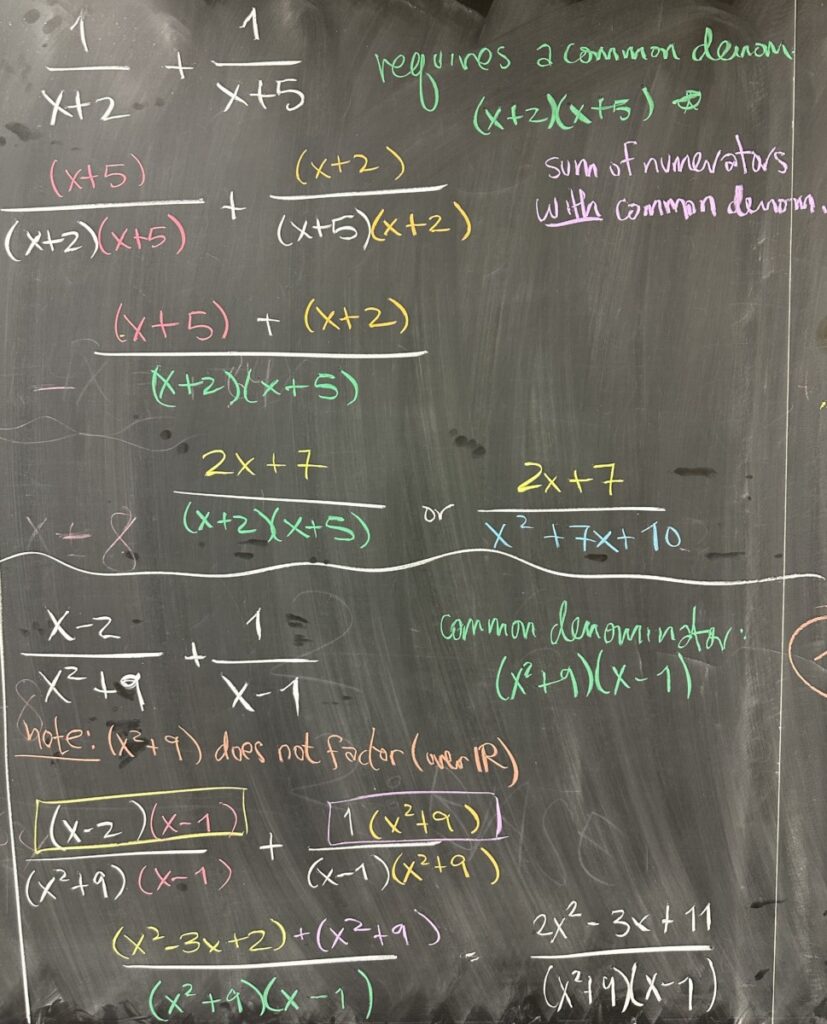 1/(x+2) + 1/(x+5) requires a common denom.
(x+2)(x+5)
(x+5)/((x+2)(x+5)) + (x+2)/((x+5)(x+2)) sum of numerators
with common denom.
((x+5) + (x+2))/((x+2)(x+5))
(2x+7)/((x+2)(x+5)) or (2x+7)/(x²+7x+10)
(x-2)/(x²+9) + 1/(x-1) common denominator:
(x²+9)(x-1)
note: (x²+9) does not factor (over ℝ)
((x-2)(x-1))/((x²+9)(x-1)) + (1(x²+9))/((x-1)(x²+9))
((x²-3x+2)+(x²+9))/((x²+9)(x-1)) = (2x²-3x+11)/((x²+9)(x-1))